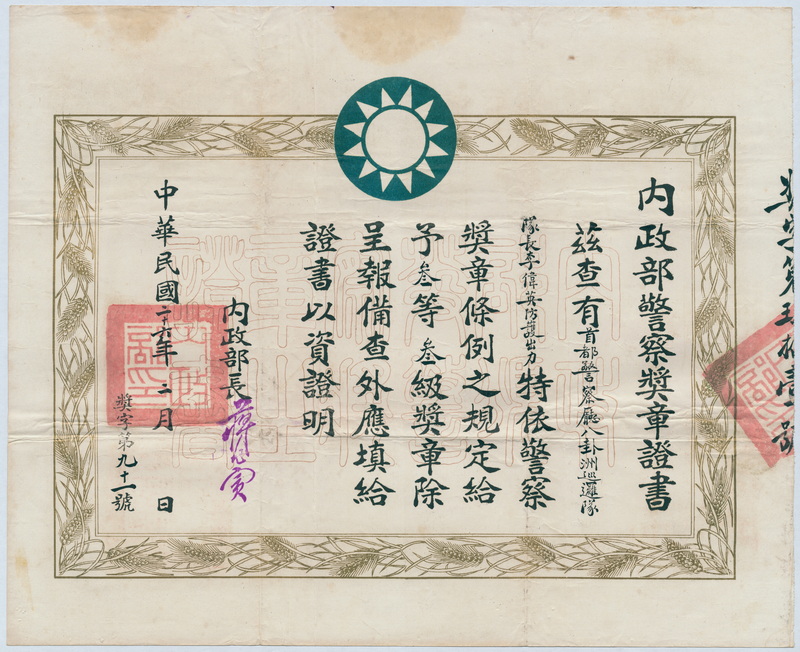 內政部警察獎章證書
茲查有首都警察廳八卦洲巡邏隊
隊長李偉英防護出力特依警察
獎章條例之規定給
予叁等叁級獎章除
呈報備查外應填給
證書以資證明
內政部長
中華民國二十六年二月 日
獎字第九十一號